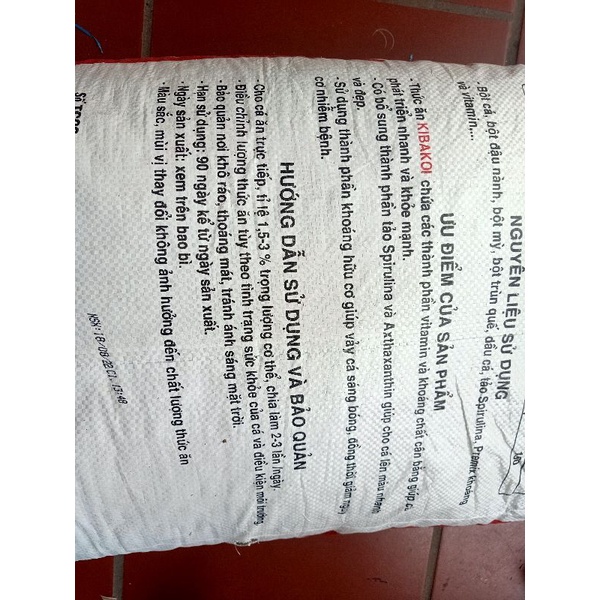 NGUYÊN LIỆU SỬ DỤNG
- Bột cá, bột đậu nành, bột mỳ, bột trùn quế, dầu cá, tảo Spirulina, Premix khoáng
và vitamin....
ƯU ĐIỂM CỦA SẢN PHẨM
- Thức ăn KIBAKOI chứa các thành phần vitamin và khoáng chất cân bằng giúp cá
phát triển nhanh và khỏe mạnh.
- Có bổ sung thành phần tảo Spirulina và Axthaxanthin giúp cho cá lên màu nhanh
và đẹp.
- Sử dụng thành phần khoáng hữu cơ giúp vảy cá sáng bóng, đồng thời giảm nguy
cơ nhiễm bệnh.
HƯỚNG DẪN SỬ DỤNG VÀ BẢO QUẢN
- Cho cá ăn trực tiếp, tỉ lệ 1,5-3 % trọng lượng cơ thể, chia làm 2-3 lần ngày.
- Điều chỉnh lượng thức ăn tùy theo tình trạng sức khỏe của cá và điều kiện môi trường
- Bảo quản nơi khô ráo, thoáng mát, tránh ánh sáng mặt trời.
- Hạn sử dụng: 90 ngày kể từ ngày sản xuất.
- Ngày sản xuất: xem trên bao bì.
- Màu sắc, mùi vị thay đổi không ảnh hưởng đến chất lượng thức ăn
NSX:18/08/22C1.13:48